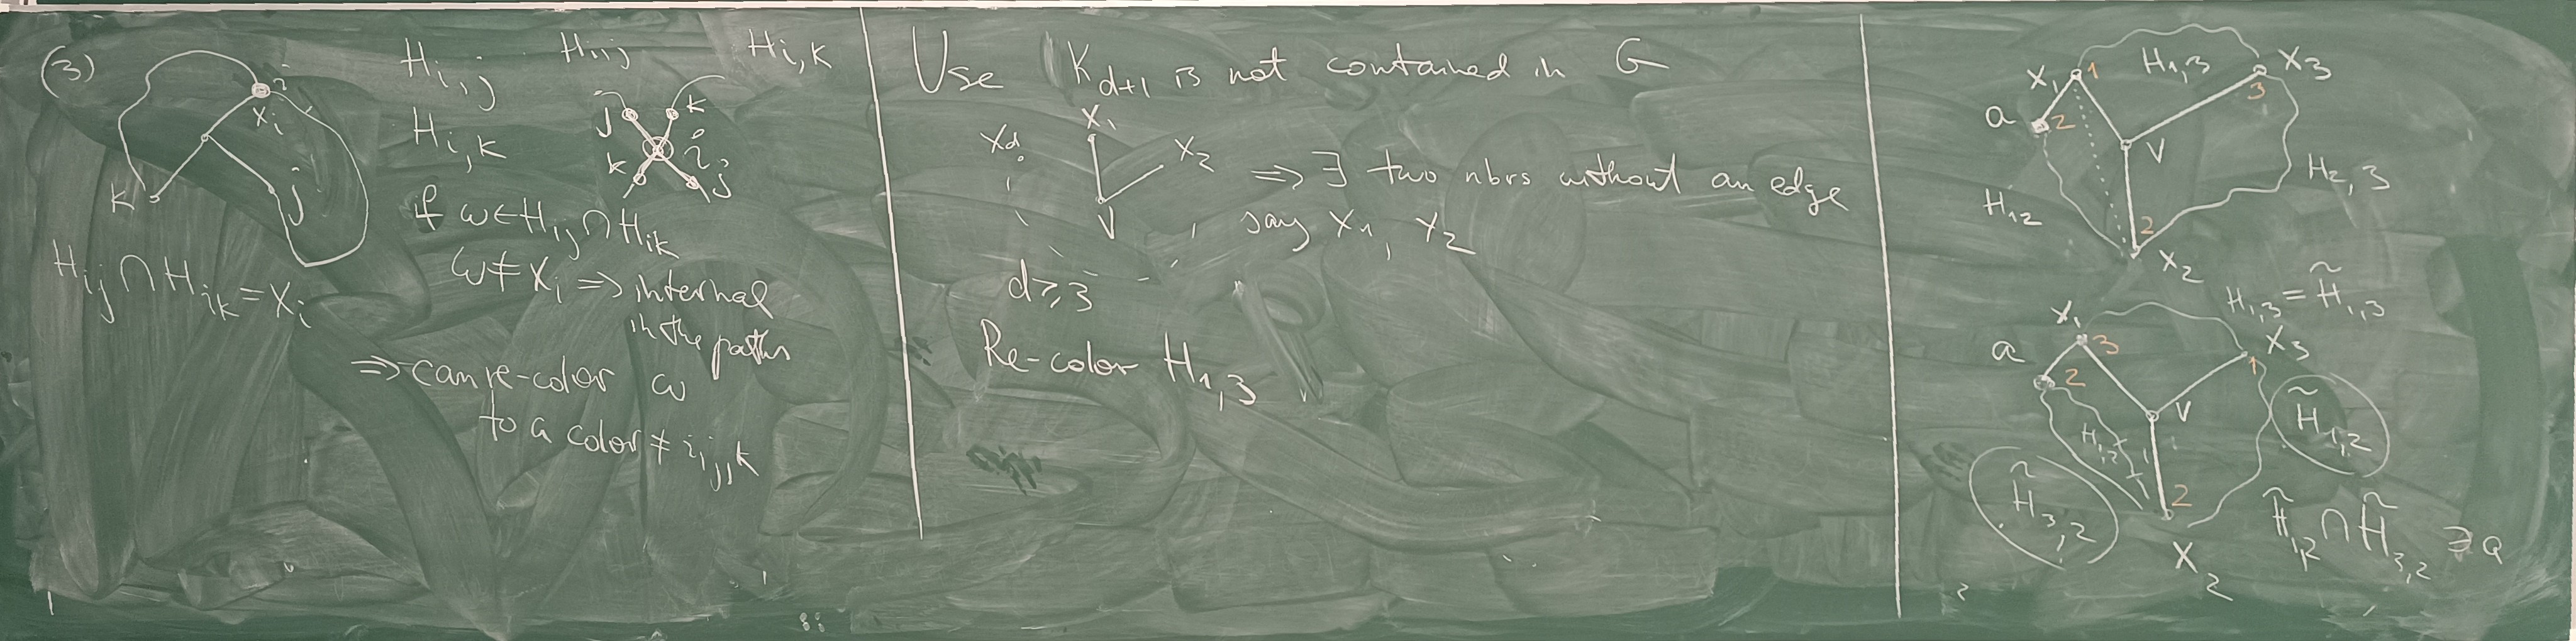 (3)
i
x_i
K
j
H_{ij} ∩ H_{ik} = x_i
H_{i,j} H_{i,j} H_{i,k}
H_{i,k}
j k
i
k j
if ω ∈ H_{ij} ∩ H_{ik}
ω ≠ x_i ⇒ internal
in the paths
⇒ can re-color ω
to a color ≠ i, j, k
Use K_{d+1} is not contained in G
x_d x_1 x_2
v
⇒ ∃ two nbrs without an edge
say x_1, x_2
d ≥ 3
Re-color H_{1,3}
x_1 1 H_{1,3} x_3
3
a 2
v
H_{12} H_{2,3}
2
x_2
H_{1,3} = H̃_{1,3}
x_1 3 x_3
1
a 2
v
H_{1,2} H̃_{1,2}
H̃_{3,2} 2
x_2
H̃_{1,2} ∩ H̃_{3,2} ∋ a